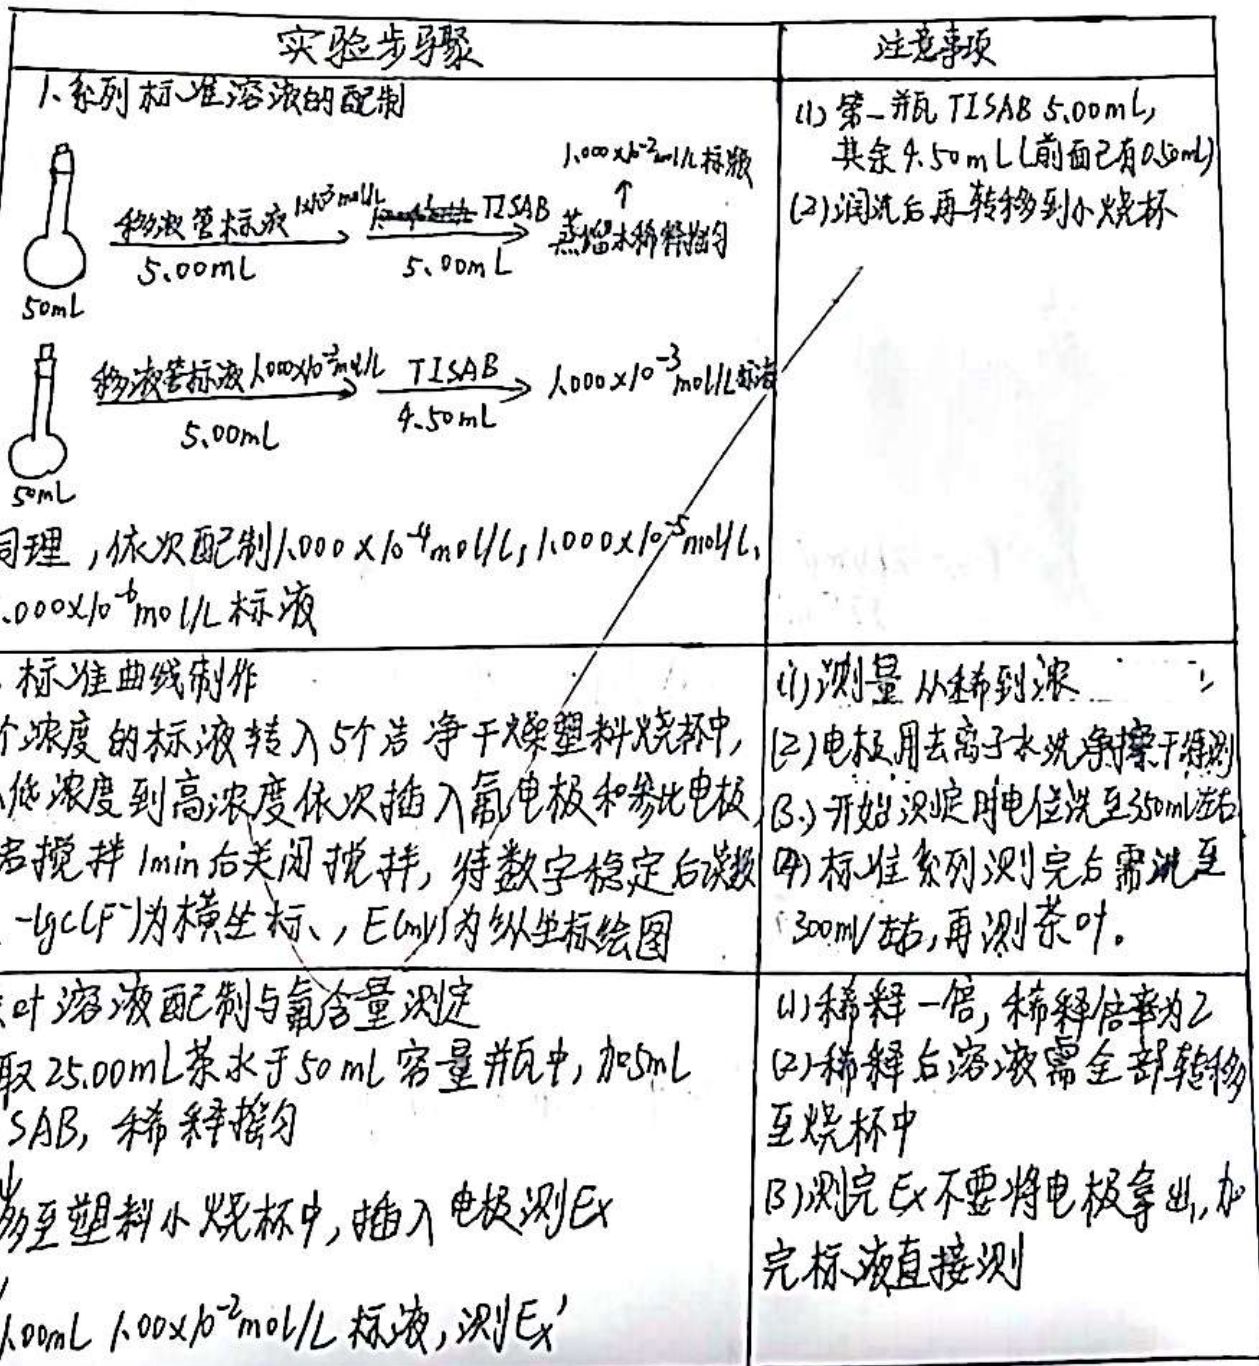 实验步骤
注意事项
1、系列标准溶液的配制
移液管标液
5.00mL
TISAB
5.00mL
蒸馏水稀释摇匀
↑
1.000×10⁻²mol/L标液
50mL
移液管标液1.000×10⁻²mol/L
5.00mL
TISAB
4.50mL
1.000×10⁻³mol/L标液
50mL
同理,依次配制1.000×10⁻⁴mol/L,1.000×10⁻⁵mol/L,
.000×10⁻⁶mol/L标液
(1)第一瓶TISAB 5.00mL,
其余4.50mL(前面已有0.50ml)
(2)润洗后再转移到小烧杯
、标准曲线制作
个浓度的标液转入5个洁净干燥塑料烧杯中,
低浓度到高浓度依次插入氟电极和参比电极,
搅拌1min后关闭搅拌,待数字稳定后读数
-lgc(F⁻)为横坐标、,E(mV)为纵坐标绘图
(1)测量从稀到浓
(2)电极用去离子水洗净擦干待测
(3)开始测定时电位洗至350mV左右
(4)标准系列测完后需洗至
300mV左右,再测茶叶。
叶溶液配制与氟含量测定
取25.00mL茶水于50ml容量瓶中,加5mL
SAB,稀释摇匀
移至塑料小烧杯中,插入电极测Ex
1.00mL 1.00×10⁻²mol/L标液,测Ex'
(1)稀释一倍,稀释倍率为2
(2)稀释后溶液需全部转移
至烧杯中
(3)测完Ex不要将电极拿出,加
完标液直接测